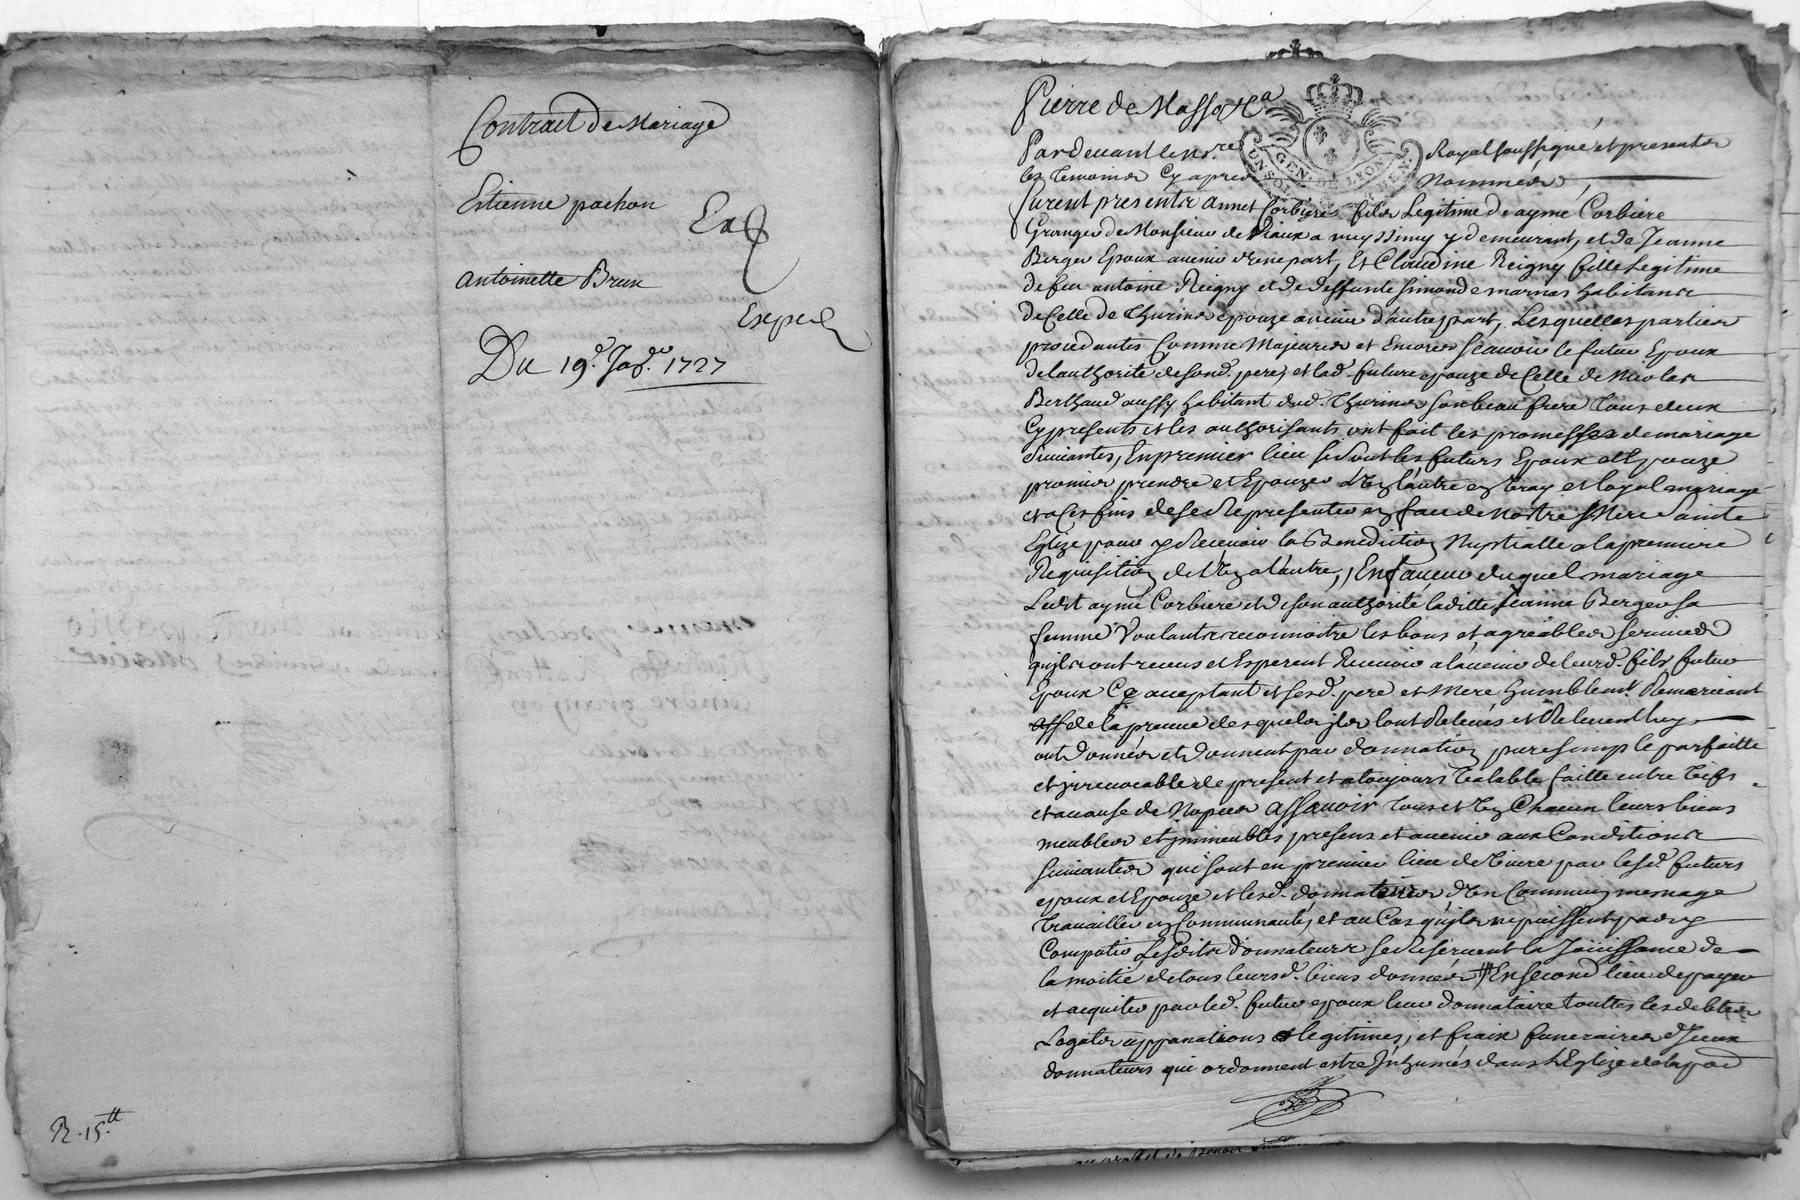 Contrat de Mariage
Estienne pachon
antoinette Brun
Exped
Du 19e. Jap.er 1727
R. 15.tt
Pierre de Masso
GEN. DE LYON
Pardeuant le no.re Royal soussigné et presents
les temoins Cy apres Nommés
furent presents annet Corbiere fils Legitime de aymé Corbiere
Granger de Monsieur de a messimy y demeurant, et de Jeanne
Berger Epoux auenir d'une part, Et Claudine Reigny fille Legitime
de feu antoine Reigny et de deffunte simonde marnas habitante
de Celle de Thurins epouze auenir d'autre part, Lesquelles parties
procedantes Comme Majeures et Encores scauoir le futur Epoux
de l'authorité de sond. pere, et lad. future epouze de Celle de Nicolas
Berthaud aussy habitant dud. Thurins son beau frere tous deux
Cy presents et les authorisants ont fait les promesses de mariage
suiuantes, En premier lieu se sont les futurs Epoux et Epouze
promis prendre et Epouzer l'un l'autre en vray et loyal mariage
et a ces fins de se Representer en face de Nostre s Mere Sainte
Eglize pour y Receuoir la Benediction Nuptialle a la premiere
Requisition de l'un a l'autre, En faueur duquel mariage
Ledit aymé Corbiere et de son authorité laditte Jeanne Berger sa
femme Voulants reconnoitre les bons et agreables seruices
qu'ils ont receus et Esperent Receuoir a l'auenir de leurd. fils futur
Epoux Cy acceptant et sesd. pere et Mere humblem.t Remerciant
de la preuue desquels ils l'ont Releués et Releuent luy
ont donnés et donnent par donnation pure simple parfaitte
et irreuocable de present et a toujours Valable faitte entre Vifs
et a cause de Nopces assauoir tous et un Chacun leurs biens
meubles et immeubles presens et auenir aux Conditions
suiuantes qui sont en premier lieu de viure par lesd. futurs
epoux et Epouze et lesd. donnateurs d'un Commun mesnage
trauailler en Communauté, et au Cas qu'ils ne puissent pas y
Compatir Lesdits donnateurs se Reseruent la Joüissance de
la moitié de tous leursd. biens donnés En second lieu de payer
et acquiter par led. futur epoux leur donnataire touttes les debtes
Legats appanations legitimes, et fraix funeraires d'Iceux
donnateurs qui ordonnent estre Inhumés dans l'Eglize de la par